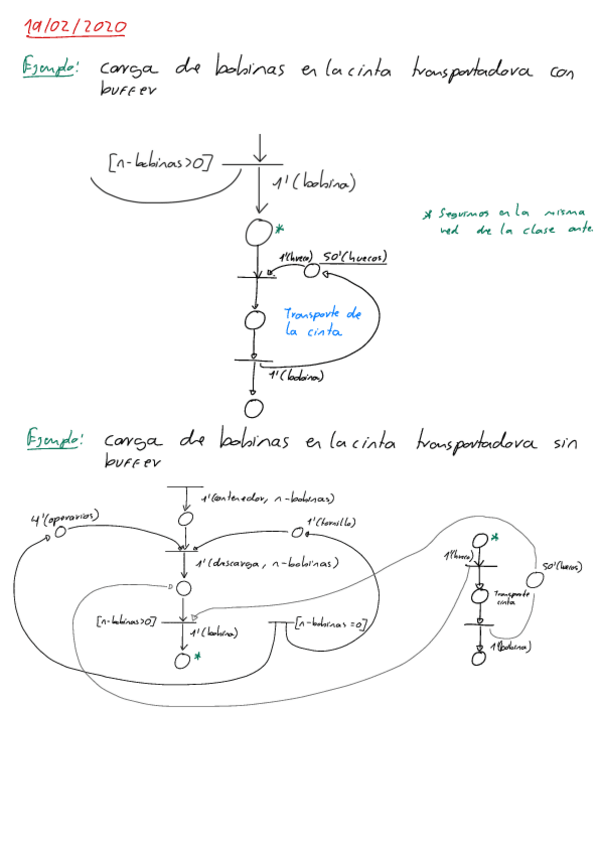 19/02/2020
Ejemplo: carga de bobinas en la cinta transportadora con
buffer
[n-bobinas>0]
1'(bobina)
*
* Seguimos en la misma
red de la clase ante
1'(hueco) 50'(huecos)
Transporte de
la cinta
1'(bobina)
Ejemplo: carga de bobinas en la cinta transportadora sin
buffer
1'(contenedor, n-bobinas)
4'(operarios)
1'(tornillo)
1'(descarga, n-bobinas)
*
1'(hueco)
50'(huecos)
Transporte
cinta
[n-bobinas>0]
1'(bobina)
[n-bobinas=0]
1'(bobina)
*